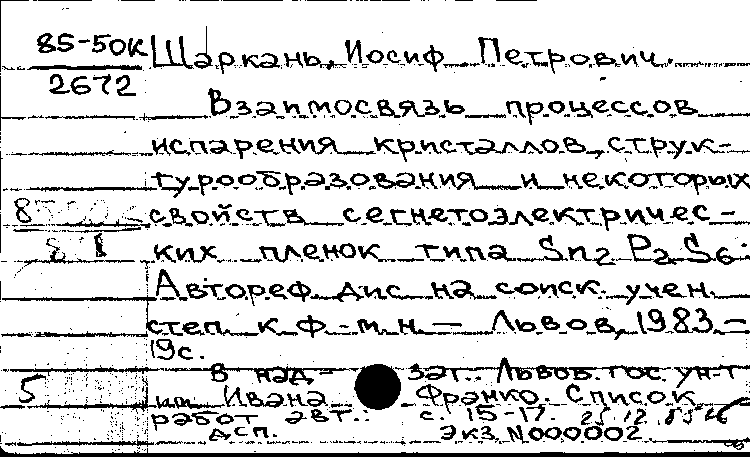 85-50к Шаркань, Иосиф Петрович.
2672
Взаимосвязь процессов
испарения кристаллов, струк-
турообразования и некоторых
свойств сегнетоэлектричес-
ких пленок типа Sn2 P2 S6.
Автореф. дис на соиск. учен.
степ. к.ф.-м.н. — Львов, 1983.—
19с.
В над-заг.: Львов. гос. ун-т
5 им Ивана Франко. Список
работ авт.: с. 15-17.
ДСП. Экз N000002.